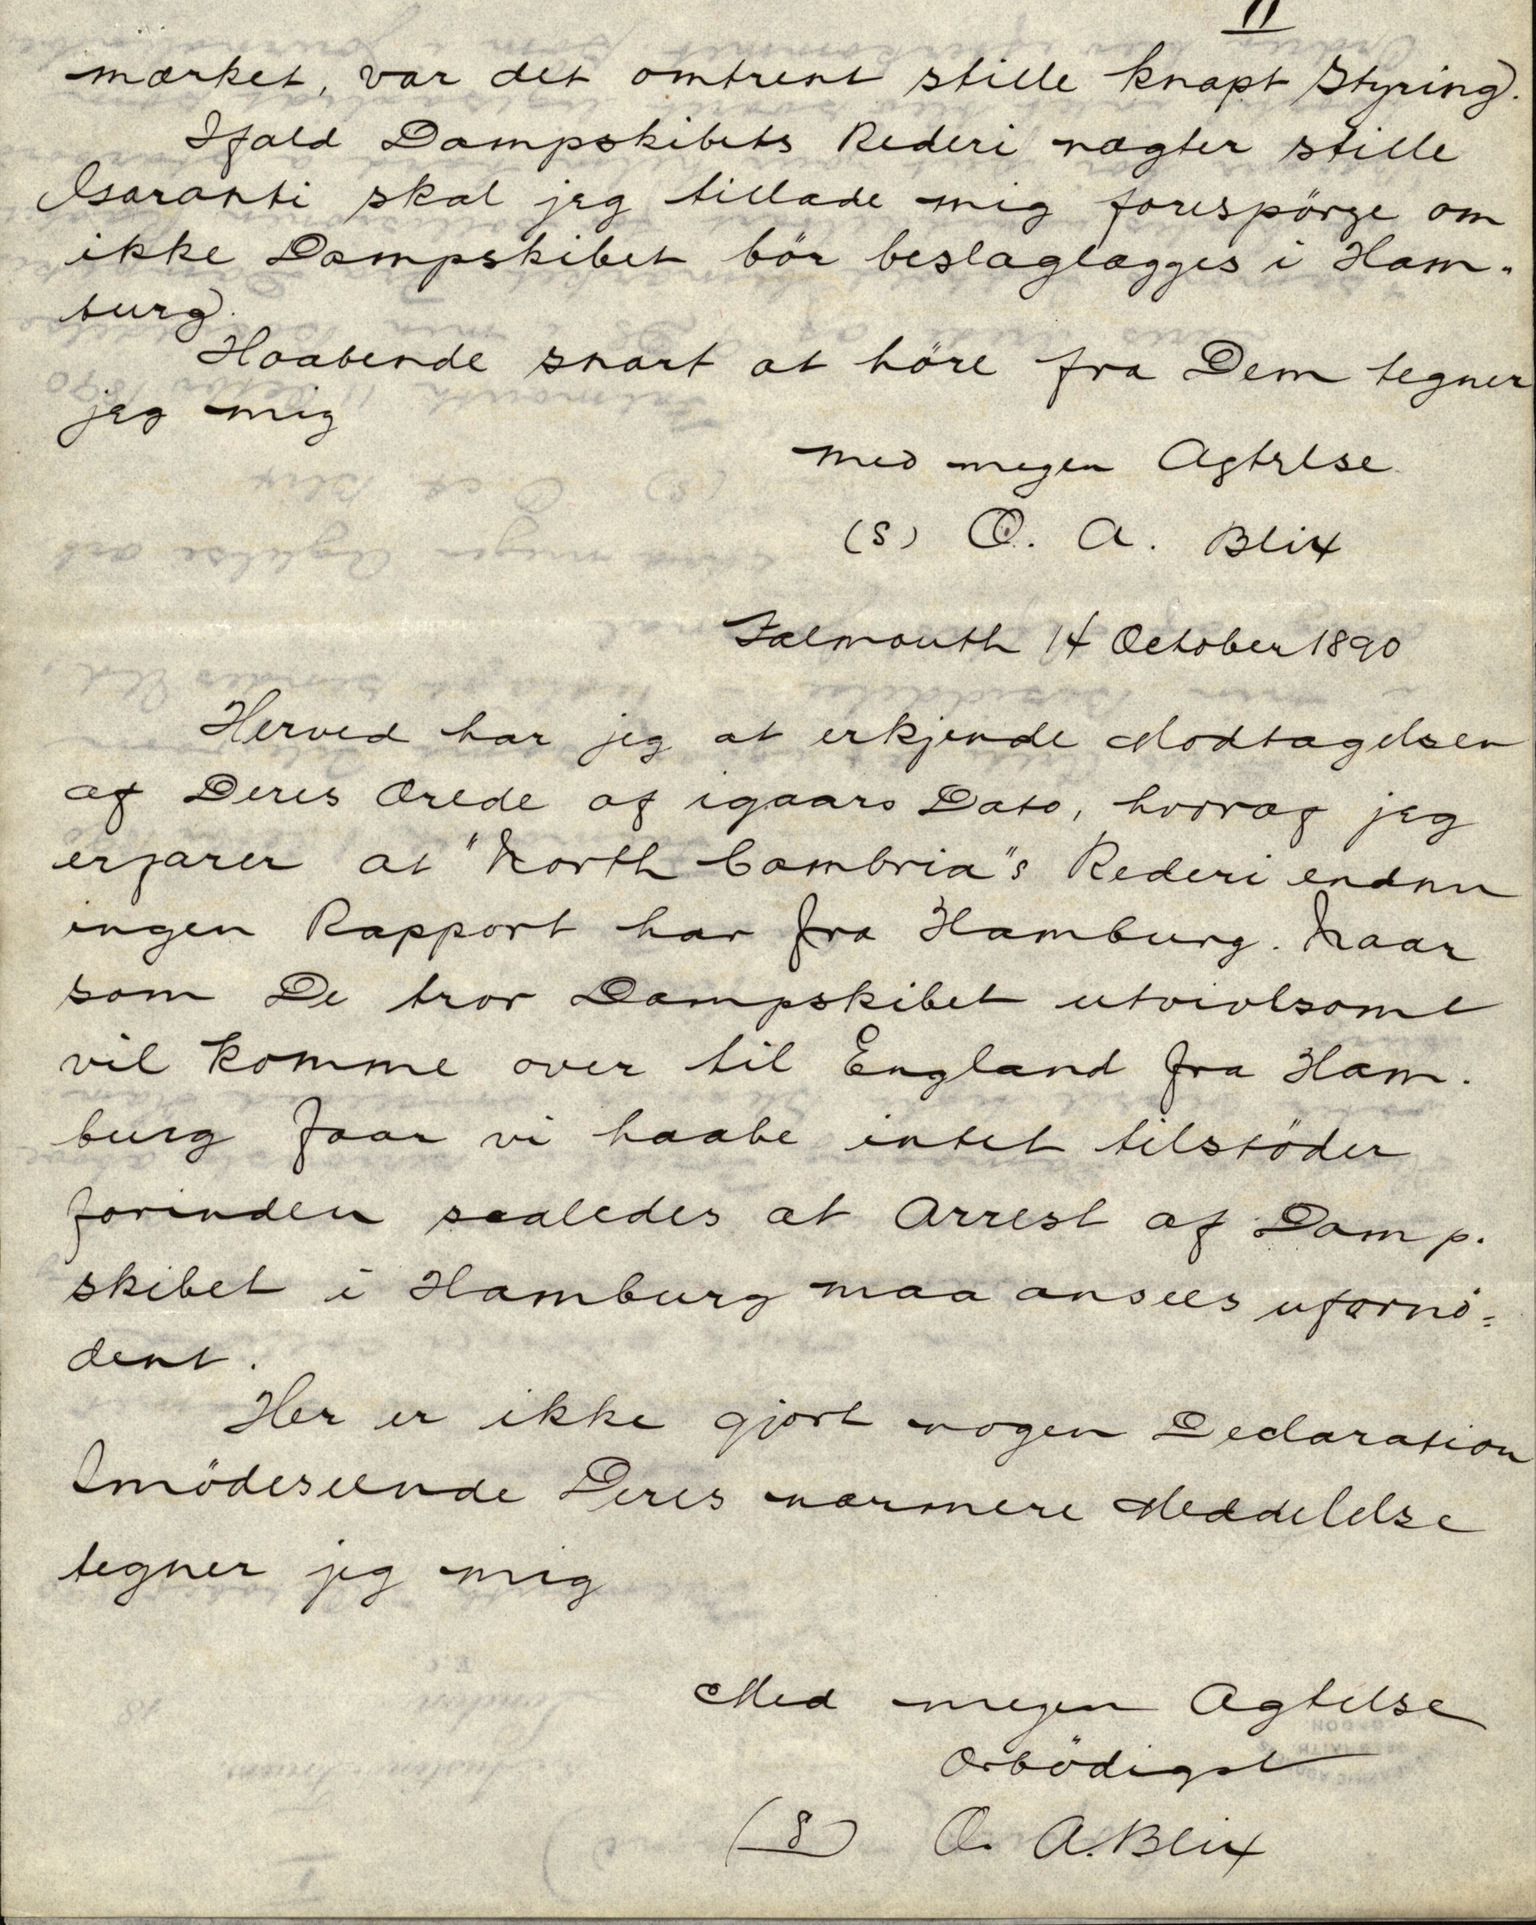 II
mærket, var det omtrent stille knapt Styring.
Ifald Dampskibets Rederi nægter stille
Garanti skal jeg tillade mig forespörge om
ikke Dampskibet bör beslaglægges i Ham-
burg.
Haabende snart at höre fra Dem tegner
jeg mig
med megen Agtelse
(S) O. A. Blix
Falmouth 14 October 1890
Herved har jeg at erkjende Modtagelsen
af Deres Ærede af igaars Dato, hvoraf jeg
erfarer at "North Cambria"s Rederi endnu
ingen Rapport har fra Hamburg. Naar
som De tror Dampskibet utvivlsomt
vil komme over til England fra Ham-
burg faar vi haabe intet tilstöder
forinden saaledes at Arrest af Damp-
skibet i Hamburg maa ansees ufornö=
dent.
Her er ikke gjort nogen Declaration
Imödeseende Deres nærmere Meddelelse
tegner jeg mig
Med megen Agtelse
Ærbödigst
(S) O. A. Blix